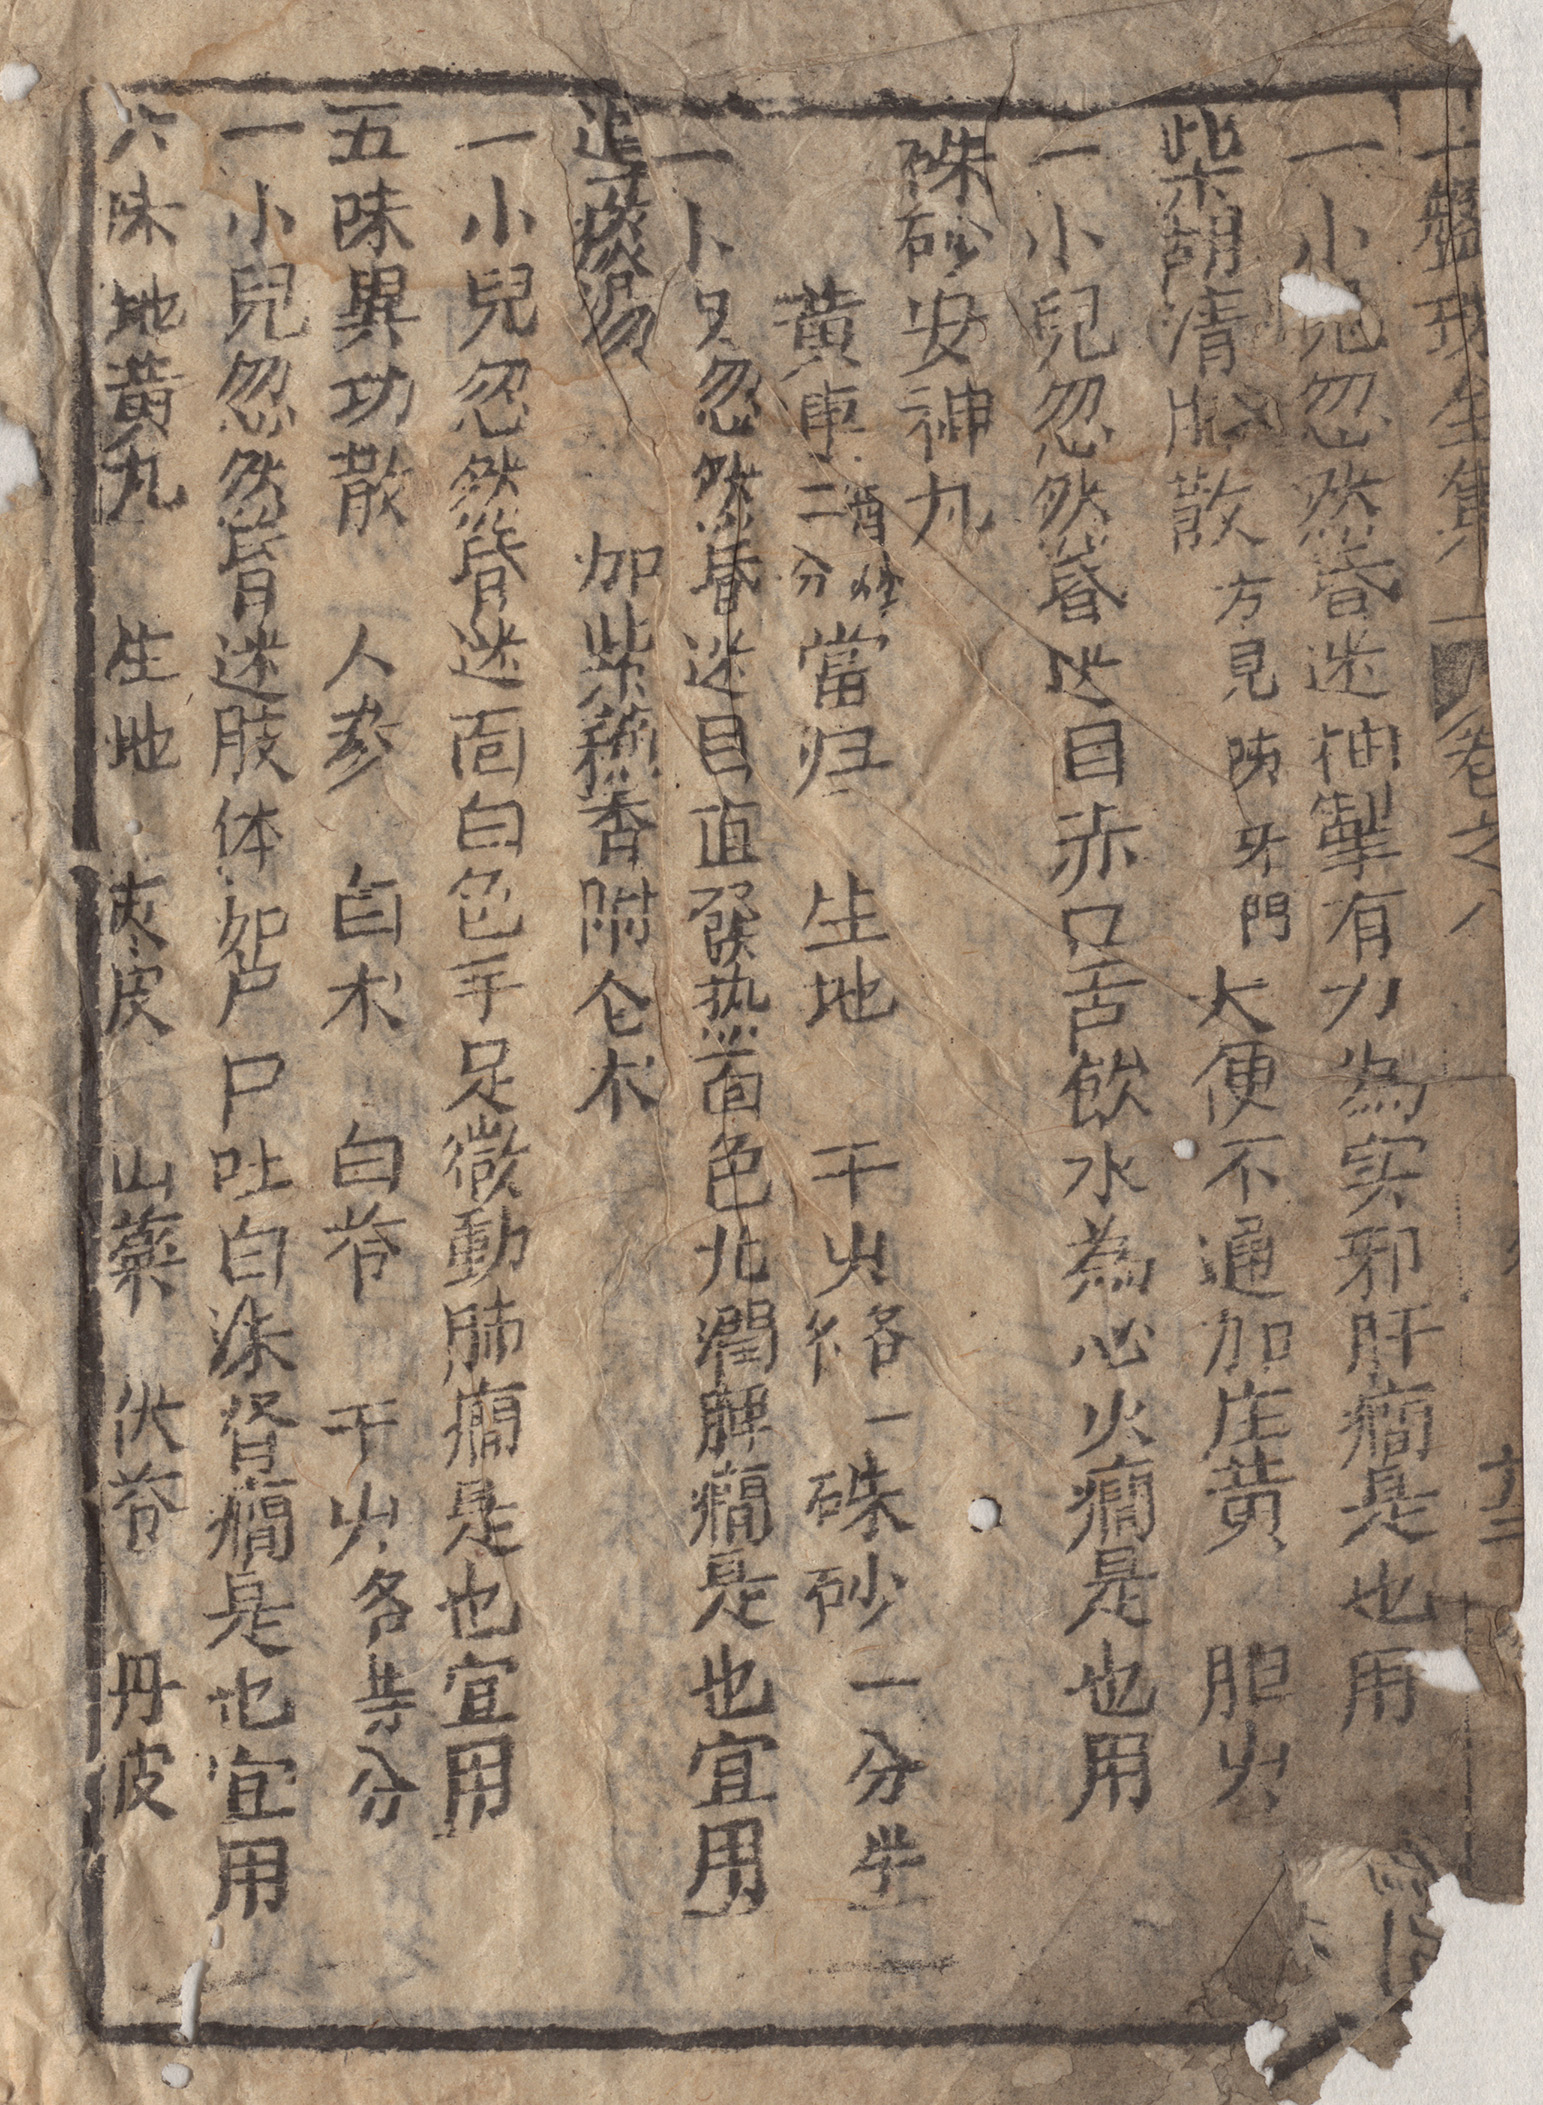 盤珠集 卷之八 六十三
一小兒忽然昏迷抽掣有力為实邪肝癎是也用
柴胡清肝散 方見陝牙門 大便不通加庄黄 胆屮
一小兒忽然昏迷目赤口舌飲水為心火癎是也用
硃砂安神丸
黄連二分 酒炒 當归 生地 干屮各一 硃砂一分半
一小兒忽然昏迷目直發热面色北潤脾癎是也宜用
追痰湯 加柴蘓香附仑术
一小兒忽然昏迷面白色手足微動肺癎是也宜用
五味異功散 人参 白术 白苓 干屮各等分
一小兒忽然昏迷肢体如尸尸吐白沫肾癎是也宜用
六味地黄丸 生地 萸皮 山藥 伏苓 丹皮